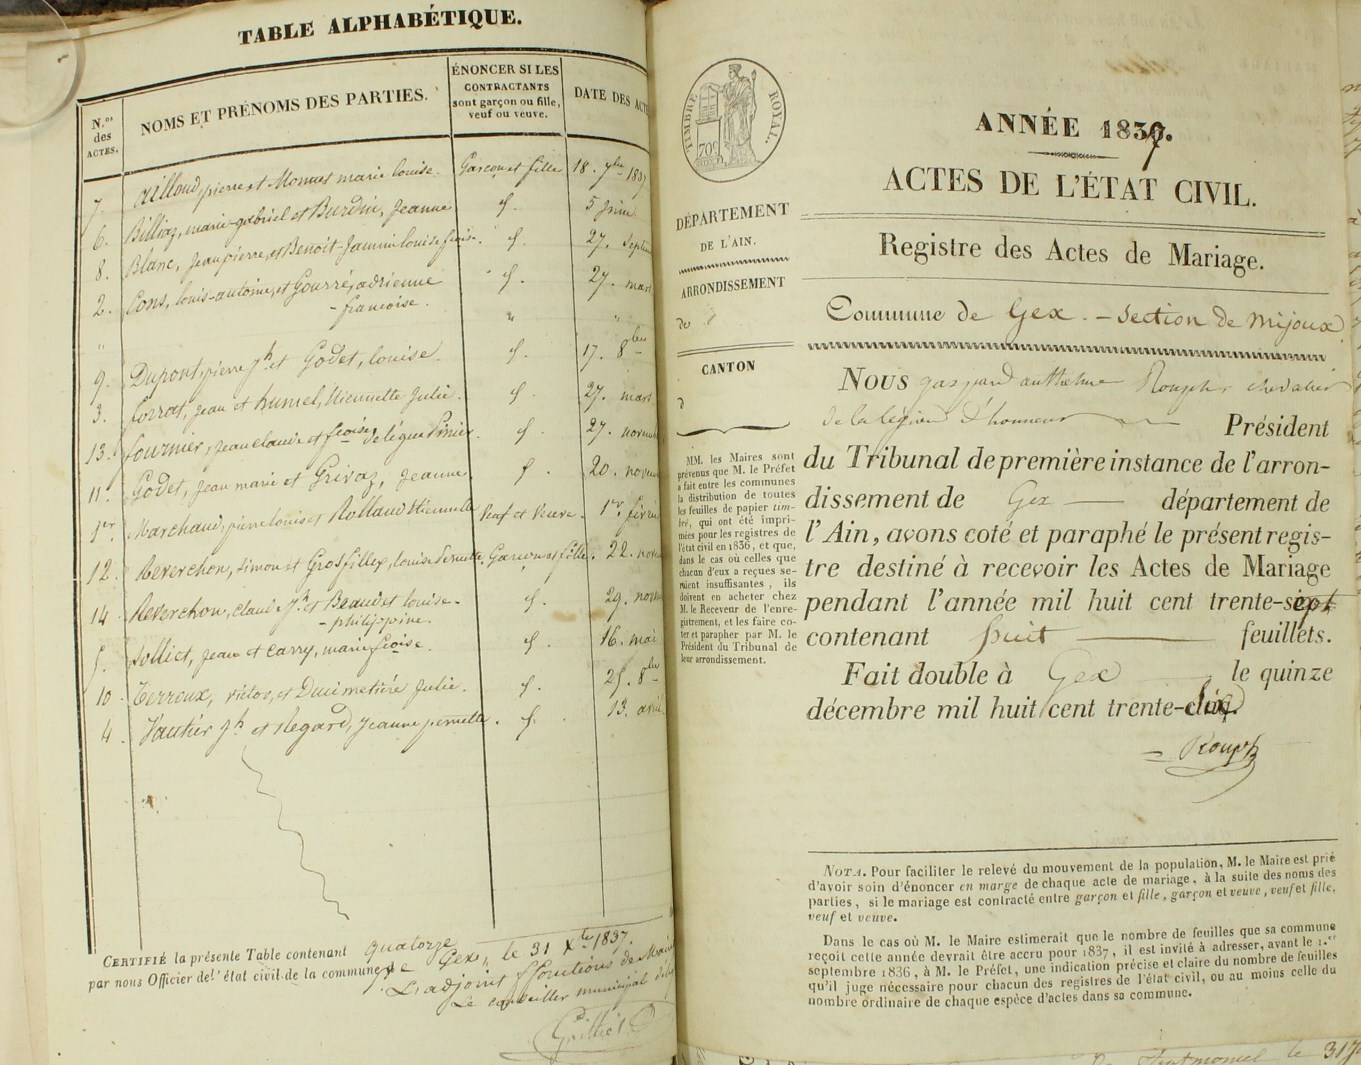 TABLE ALPHABÉTIQUE.
N.os des ACTES.
NOMS ET PRÉNOMS DES PARTIES.
ÉNONCER SI LES
CONTRACTANTS
sont garçon ou fille,
veuf ou veuve.
DATE DES ACTE
7. pierre et Monnet marie louise. Garçon et fille 18. 7bre 1837
6. Billiaz, marie-gabriel et Burdin, Jeanne id. 5 Juin
8. Blanc, Jean pierre, et Benoit-Jannin louise id. 27. Septem
2. Cons, louis-antoine, et Gourré, adrienne id. 27. mars
- francoise.
" " "
9. Dupont, pierre Jh et Godet, louise. id. 17. 8bre
3. jean et humel, Julie. id. 27. mars
13. fournier, jean claude et id. 27. novem
11. Godet, jean marie et Grivaz, Jeanne id. 20. novem
1er Marchand, pierre louis et Rolland Veuf et Veuve. 1er févrie
12. Reverchon, simon et Grosfillex, louise Garçon et fille. 22. novem
14 Reverchon, claude Jh et Beaud et louise- id. 29. novem
- philippine.
5. Jolliet, jean et Carry, marie id. 16. mai
10 Terroux, victor, et Ducimetière Julie. id. 25. 8bre
4. Vautier Jh et Regard, Jeanne pernette. id. 13. avril
CERTIFIÉ la présente Table contenant quatorze
par nous Officier de l'état civil de la commune de Gex, le 31 Xbre 1837.
L'adjoint ffonctions de Maire
Le conseiller municipal
TIMBRE ROYAL.
70c
DÉPARTEMENT
DE L'AIN.
ARRONDISSEMENT
de
CANTON
d
MM. les Maires sont
prévenus que M. le Préfet
a fait entre les communes
la distribution de toutes
les feuilles de papier tim-
bré, qui ont été impri-
mées pour les registres de
l'état civil en 1836, et que,
dans le cas où celles que
chacun d'eux a reçues se-
raient insuffisantes, ils
doivent en acheter chez
M. le Receveur de l'enre-
gistrement, et les faire co-
ter et parapher par M. le
Président du Tribunal de
leur arrondissement.
ANNÉE 1837.
ACTES DE L'ÉTAT CIVIL.
Registre des Actes de Mariage.
Commune de Gex. - Section de Mijoux
NOUS gaspard anthelme Rouph chevalier
de la légion d'honneur Président
du Tribunal de première instance de l'arron-
dissement de Gex département de
l'Ain, avons coté et paraphé le présent regis-
tre destiné à recevoir les Actes de Mariage
pendant l'année mil huit cent trente-sept
contenant huit feuillets.
Fait double à Gex le quinze
décembre mil huit cent trente-six.
Rouph
NOTA. Pour faciliter le relevé du mouvement de la population, M. le Maire est prié
d'avoir soin d'énoncer en marge de chaque acte de mariage, à la suite des noms des
parties, si le mariage est contracté entre garçon et fille, garçon et veuve, veuf et fille,
veuf et veuve.
Dans le cas où M. le Maire estimerait que le nombre de feuilles que sa commune
reçoit cette année devrait être accru pour 1837, il est invité à adresser, avant le 1.er
septembre 1836, à M. le Préfet, une indication précise et claire du nombre de feuilles
qu'il juge nécessaire pour chacun des registres de l'état civil, ou au moins celle du
nombre ordinaire de chaque espèce d'actes dans sa commune.